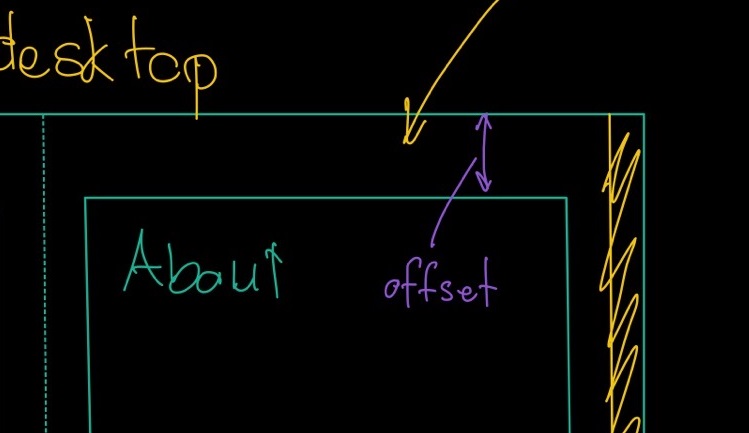 desktop
About
offset